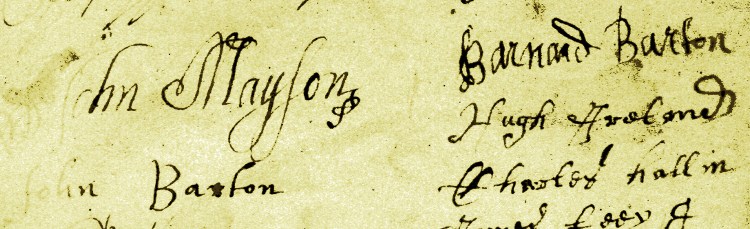 hn Mayson
John Barton
Barnard Barton
Hugh Ireland
Charles hallin